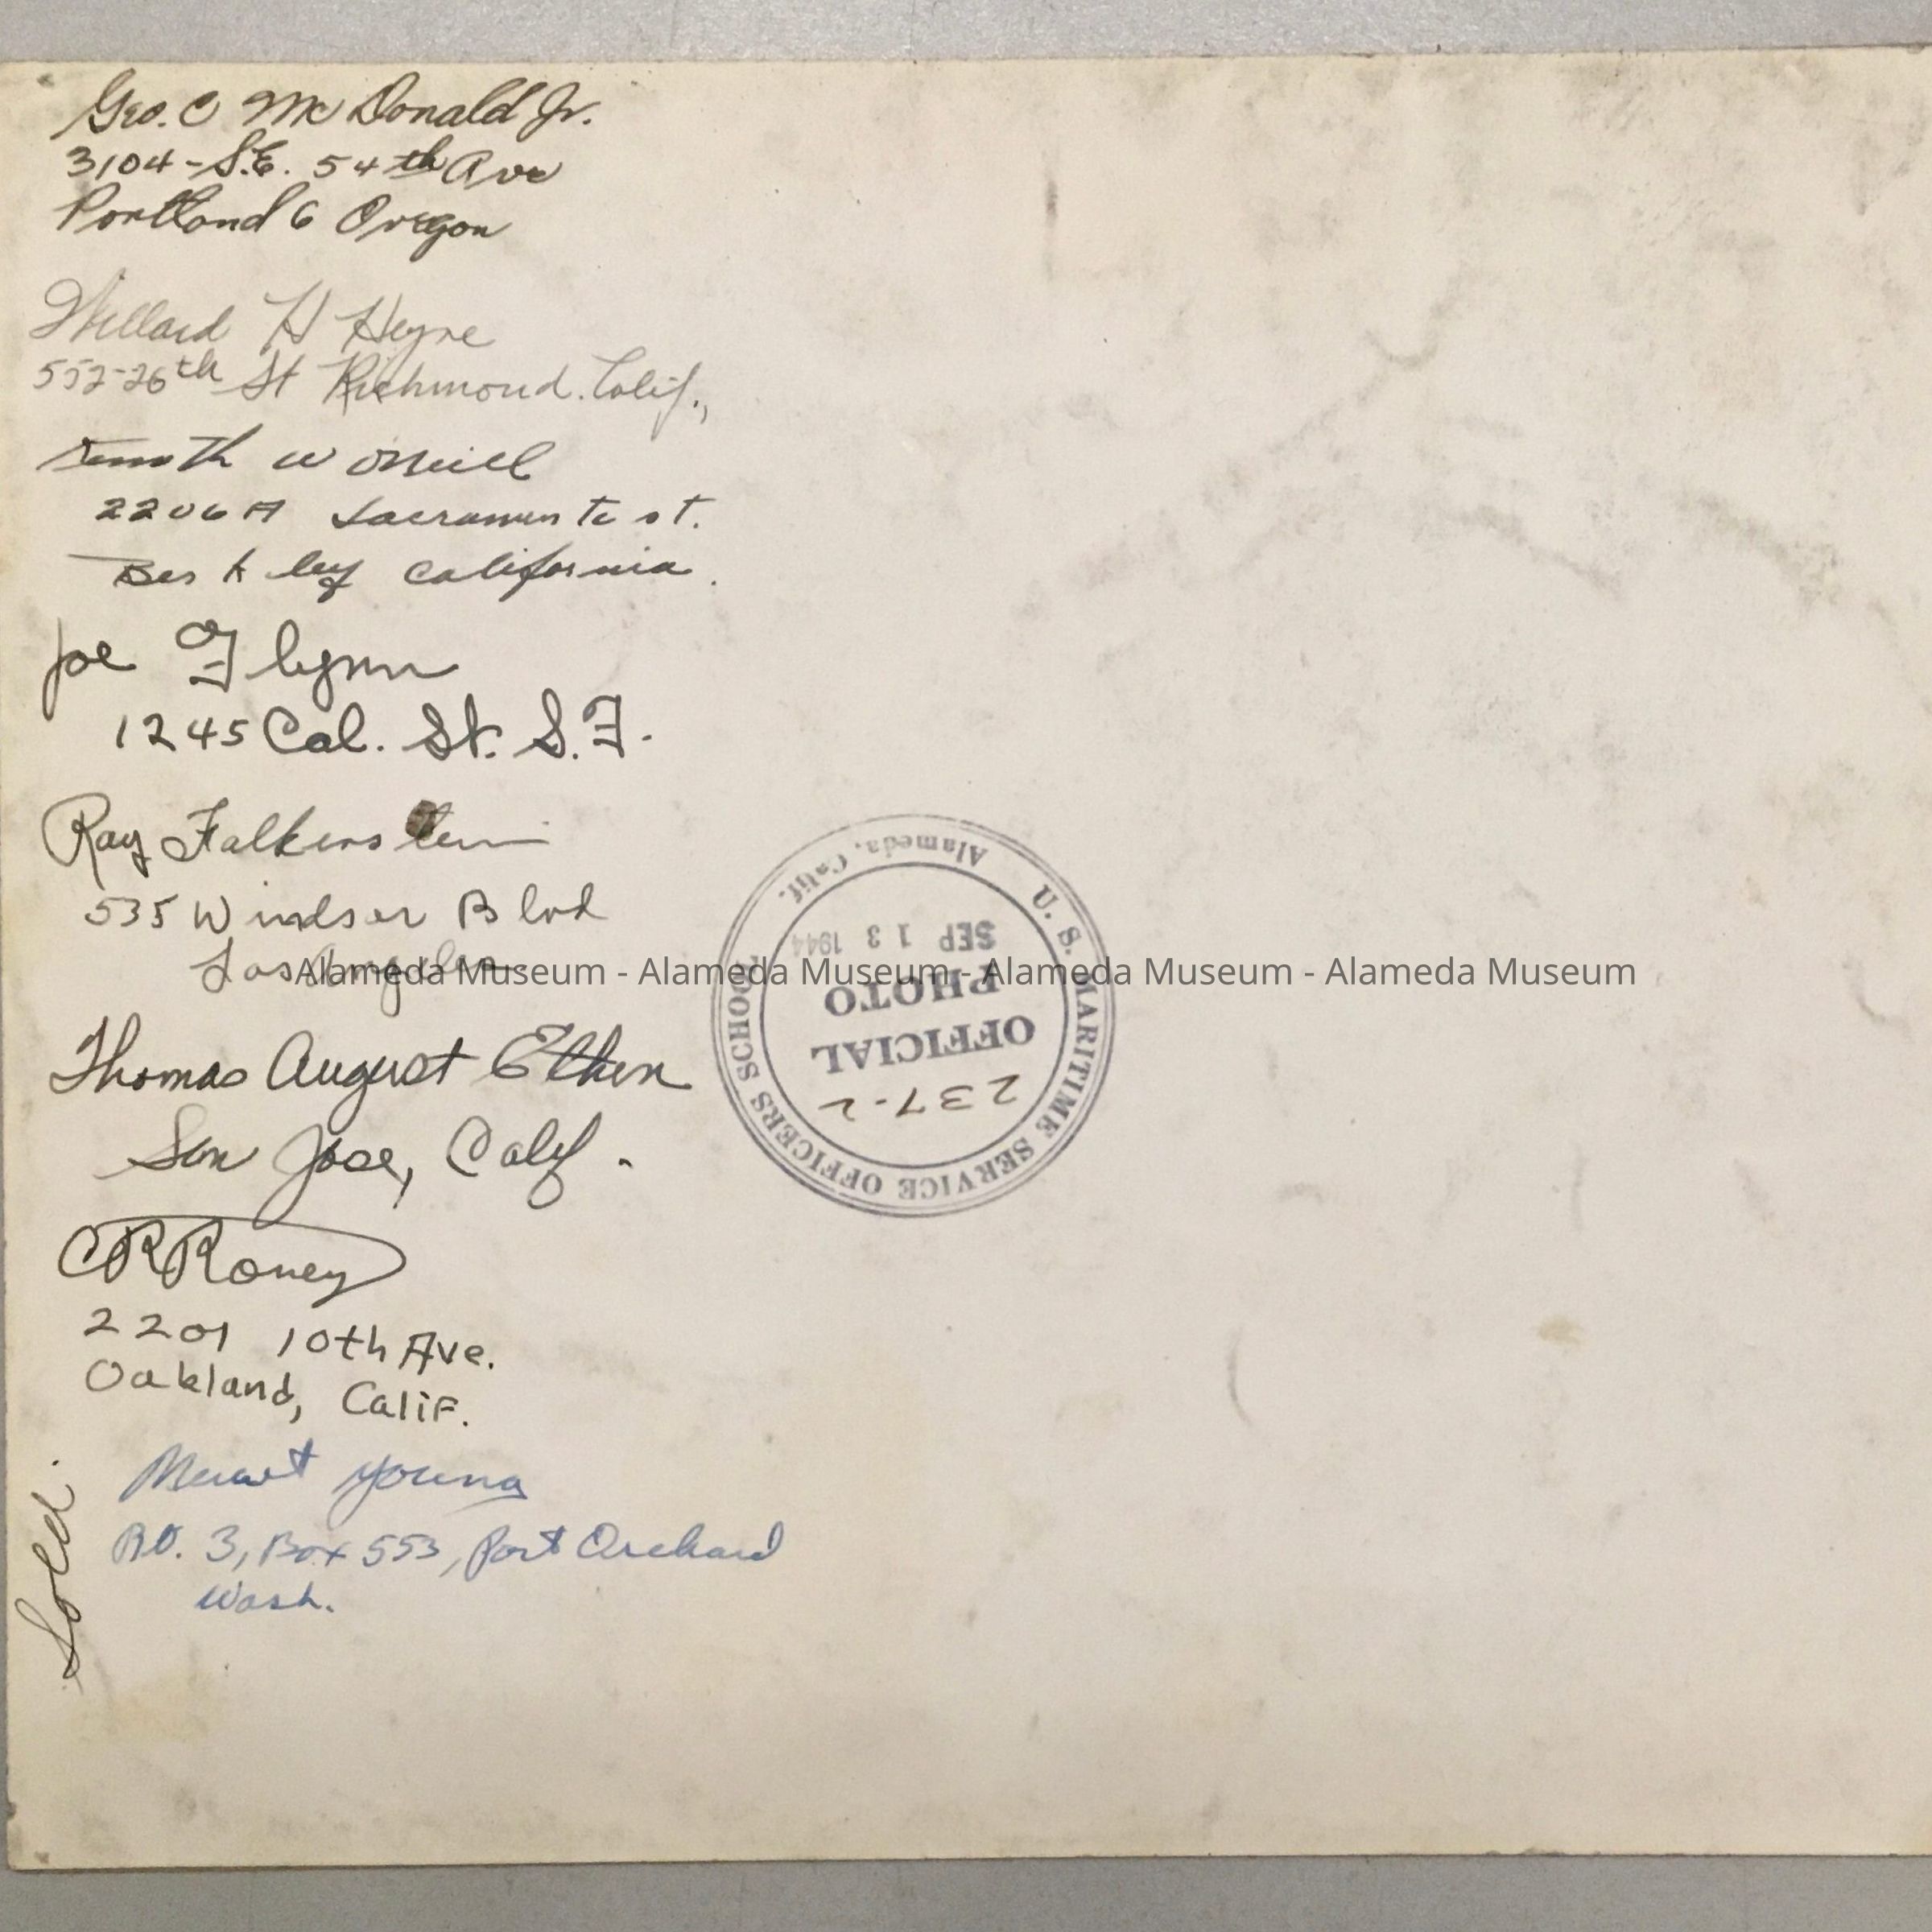 Geo. C McDonald Jr.
3104-S.E. 54th Ave
Portland 6 Oregon
Willard H Heyne
552-26th St Richmond. Calif.,
W O'Neill
2206 A Sacramento st.
Berkley California.
Joe Flynn
1245 Cal. St. S.F.
Ray Falkenstein
535 Windsor Blvd
Los Angeles
Thomas August Ethen
San Jose, Calif.
CR Roney
2201 10th Ave.
Oakland, Calif.
Young
3, Box 553, Port Orchard
Wash.
U. S. MARITIME SERVICE OFFICERS SCHOOL
Alameda, Calif.
237-2
OFFICIAL
PHOTO
SEP 13 1944
Alameda Museum - Alameda Museum - Alameda Museum - Alameda Museum